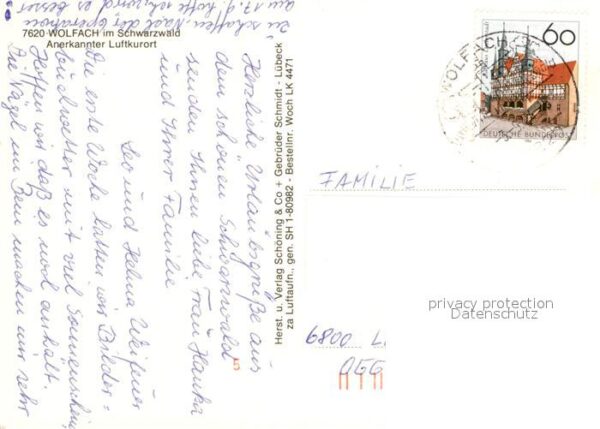 7620 WOLFACH im Schwarzwald
Anerkannter Luftkurort
Herzliche Urlaubsgrüße aus
dem schönen Schwarzwald
senden Ihnen liebe Frau Hanka
und Ihrer Familie
Leo und Helma
Die erste Woche hatten wir Bilder=
buchwetter mit viel Sonnenschein
Hoffen wir daß es noch anhält.
Die Nägel im Bein machen mir sehr
zu schaffen. Nach der Operation
am 17.9. hoffe ich wird es besser
Herst. u. Verlag Schöning & Co + Gebrüder Schmidt - Lübeck
za Luftaufn., gen. SH 1-80982 - Bestellnr. Woch LK 4471
60
DEUTSCHE BUNDESPOST
WOLFACH
FAMILIE
privacy protection
Datenschutz
6800 L.
OGG
5